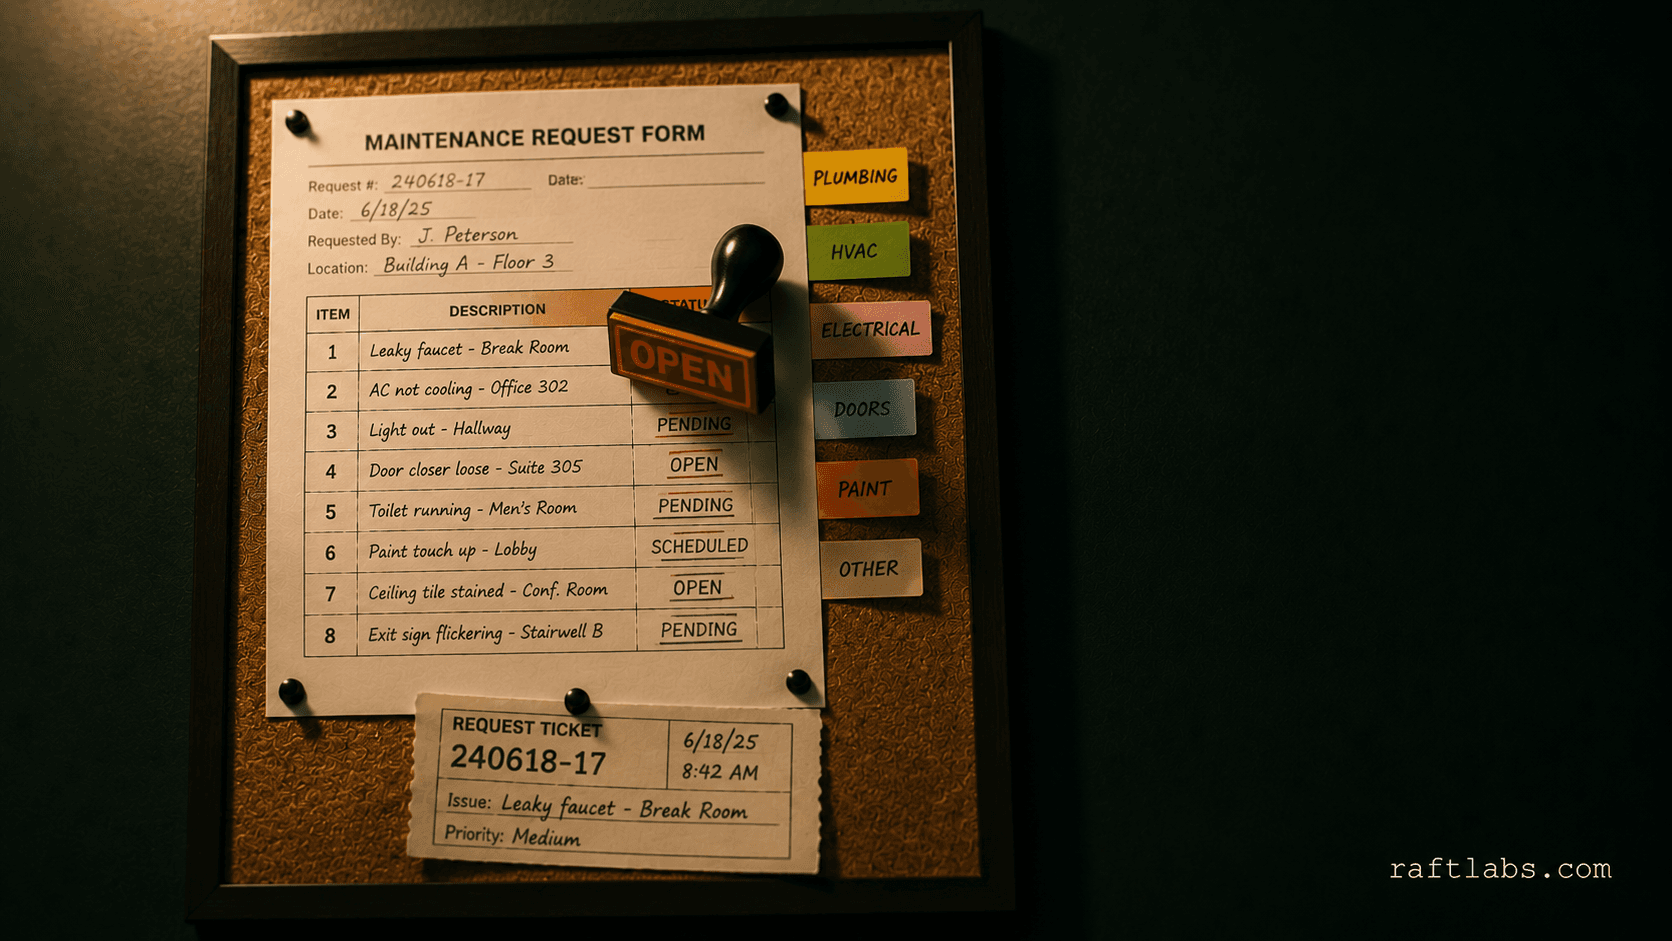 MAINTENANCE REQUEST FORM
Request #: 240618-17 Date:
Date: 6/18/25
Requested By: J. Peterson
Location: Building A - Floor 3
ITEM DESCRIPTION
1 Leaky faucet - Break Room
2 AC not cooling - Office 302
3 Light out - Hallway PENDING
4 Door closer loose - Suite 305 OPEN
5 Toilet running - Men's Room PENDING
6 Paint touch up - Lobby SCHEDULED
7 Ceiling tile stained - Conf. Room OPEN
8 Exit sign flickering - Stairwell B PENDING
OPEN
PLUMBING
HVAC
ELECTRICAL
DOORS
PAINT
OTHER
REQUEST TICKET
240618-17
6/18/25
8:42 AM
Issue: Leaky faucet - Break Room
Priority: Medium
raftlabs.com